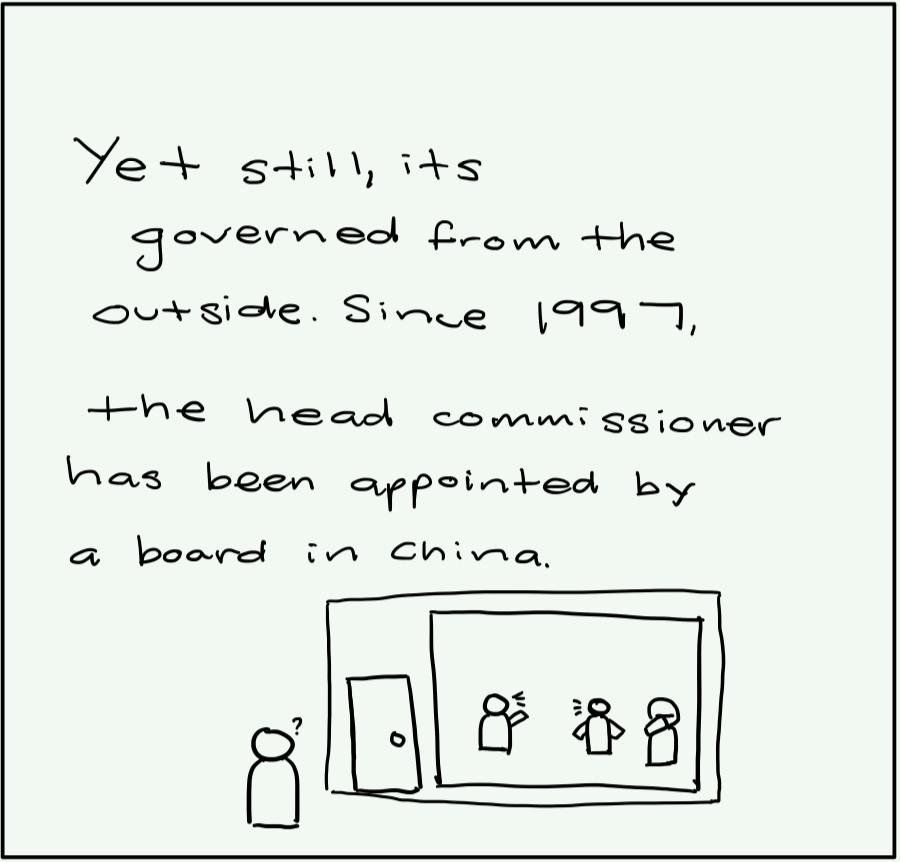 Yet still, its
governed from the
outside. Since 1997,
the head commissioner
has been appointed by
a board in China.
?